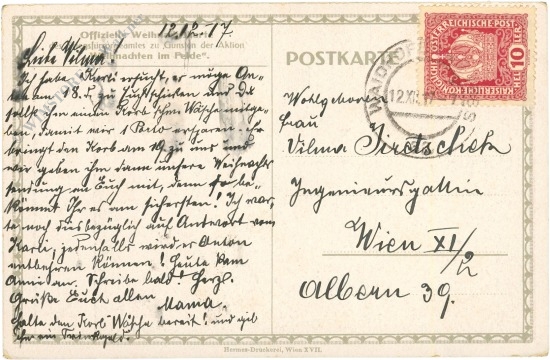 Offizielle Weih
Kriegsfürsorgeamtes zu Gunsten der Aktion
Weihnachten im Felde".
12.12.17
Liebe Vilma!
Ich habe Karli ersucht, er möge An-
ton am 18. d. zu Euch schicken und Du
sollst ihm einen Korb schm. Wäsche mitge-
ben, damit wir 1 Kilo ersparen. Er
bringt den Korb am 19. zu uns und
wir geben ihm dann unsere Weihnachts
sendung an Euch mit, denn so be-
kommt Ihr es am sichersten! Ich war-
te noch diesbezüglich auf Antwort von
Karli, jedenfalls wird er Anton
entbehren können! Heute kam
Anni an. Schreibe bald! Herzl.
Grüße Euch allen
Mama.
Halte den Korb Wäsche bereit! und gib
ihm ein Trinkgeld.
POSTKARTE
KAISERLICHE KÖNIGLICHE ÖSTERREICHISCHE POST
10 HELLER
12.XII.17
Wohlgeboren
Frau
Vilma Siretschek
Ingenieursgattin
Wien XI/2
Albern 39.
Hermes-Druckerei, Wien XVII.